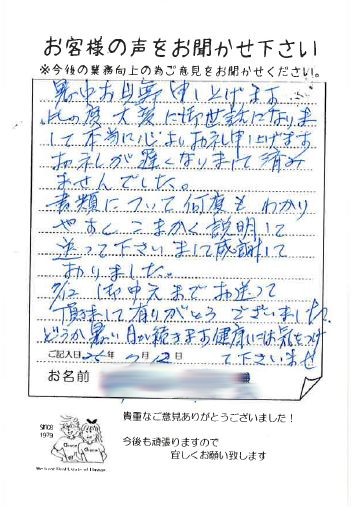 お客様の声をお聞かせ下さい
※今後の業務向上の為ご意見をお聞かせください。
暑中お見舞申し上げます
此の度大変に御世話になりま
して本当に心よりお礼申し上げます
お礼が遅くなりまして済み
ませんでした。
書類について何度もわかり
やすくこまかく説明して
送って下さいまして感謝して
おりました。
7/12 お中元までお送って
頂まして有りがとうございました
どうか暑い日が続きますお健康には気をつけ
て下さいませ
ご記入日25年7月12日
お名前
貴重なご意見ありがとうございました!
今後も頑張りますので
宜しくお願い致します
since
1979